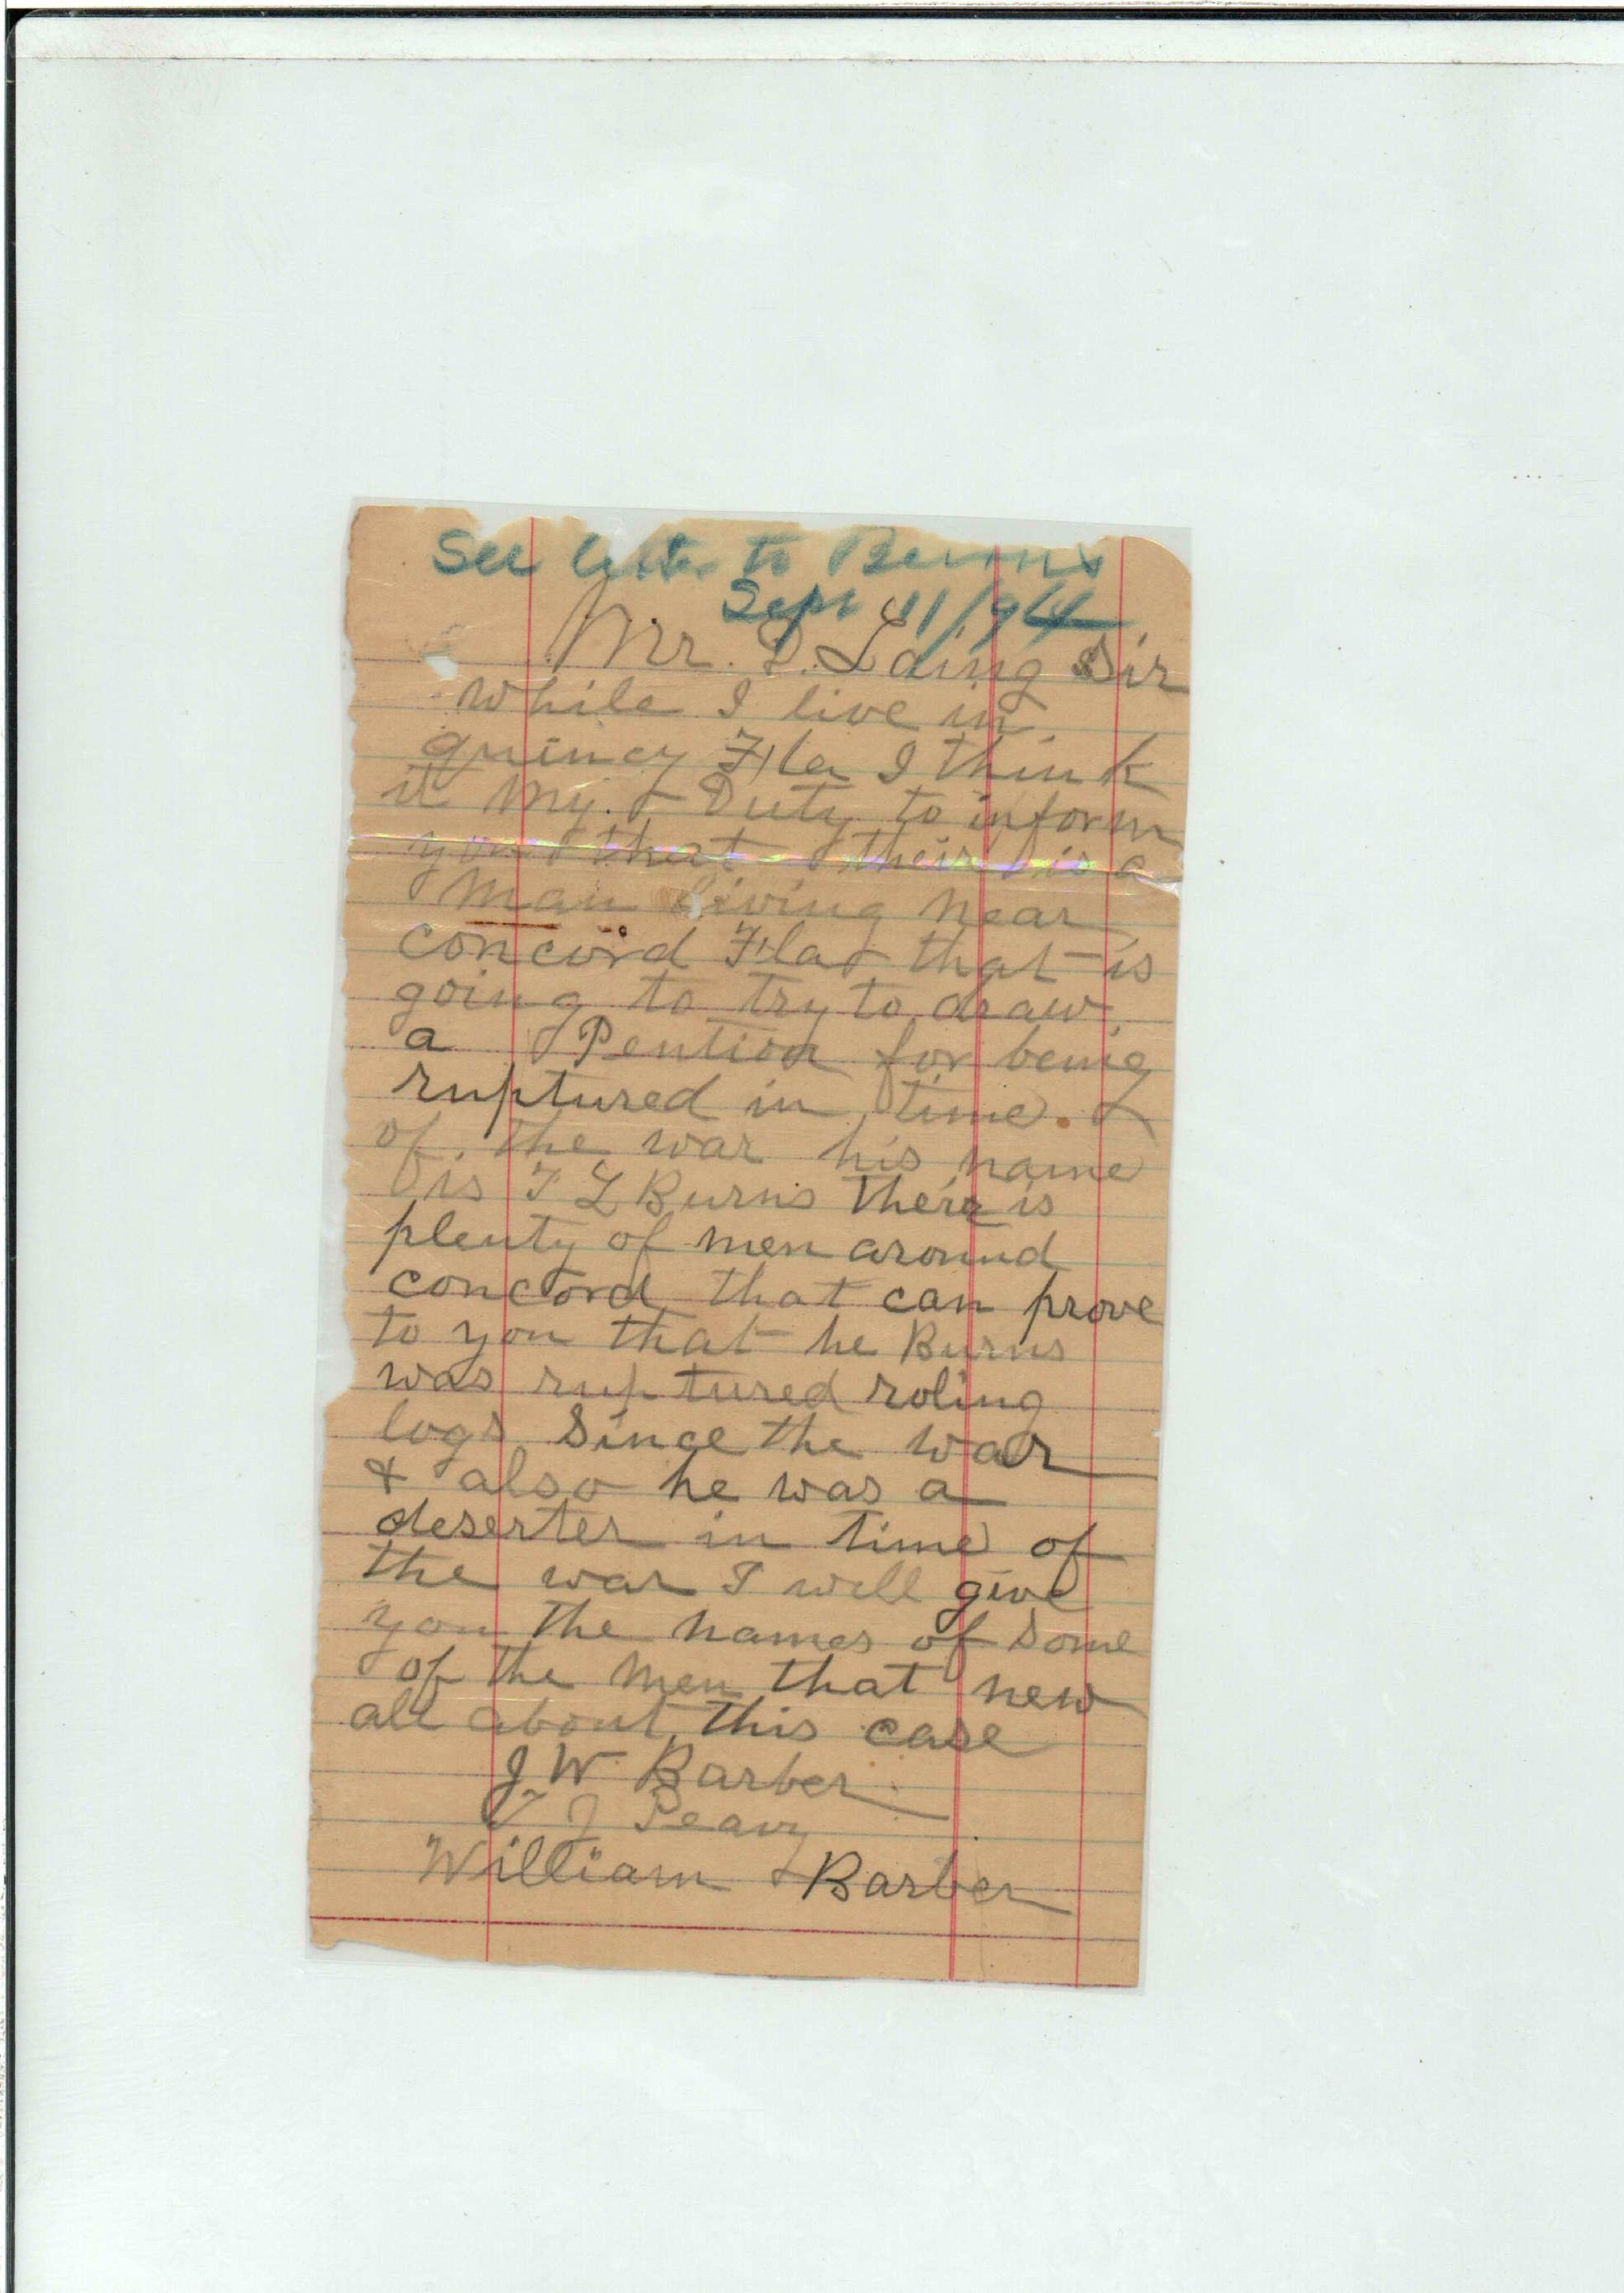 See letter to Burns
Sept 11/94
Mr. D. Laing Sir
while I live in
quincy Fla I think
it my Duty to inform
you that their is a
man living near
concord Fla that is
going to try to draw
a Pention for being
ruptured in time.
of the war his name
is T L Burns there is
plenty of men around
concord that can prove
to you that he Burns
was ruptured roling
logs Since the war
& also he was a
deserter in time of
the war I will give
you the names of Some
of the men that new
all about this case
J W Barber
J Peavy
William Barber